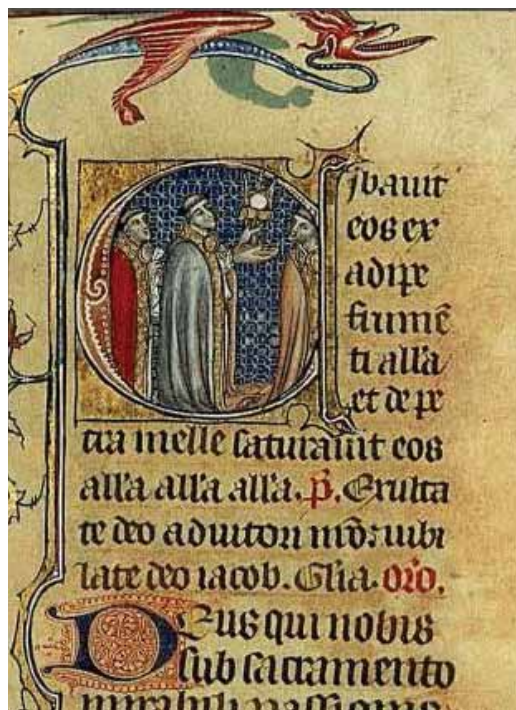 Cibauit
eos ex
adipe
frumē
ti all'a
et de pe
tra melle saturauit eos
all'a all'a all'a. p̄. Exulta
te deo adiutori nr̄o: iubi
late deo iacob. Gl'ia. Or̄o.
Deus qui nobis
sub sacramento
mirabili passionis